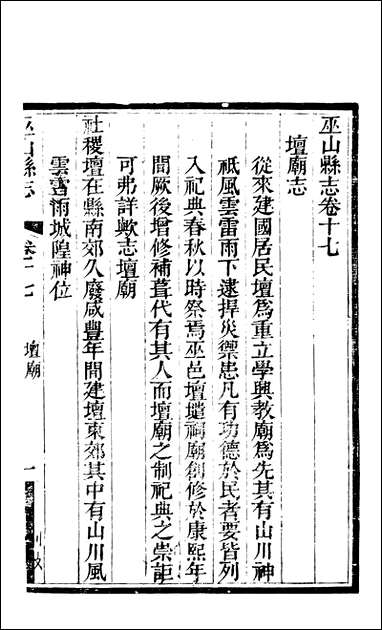 巫山縣志卷十七
壇廟志
從來建國居民壇爲重立學興教廟爲先其有山川神
祗風雲雷雨下逮捍災禦患凡有功德於民者要皆列
入祀典春秋以時祭焉巫邑壇壝祠廟創修於康熙年
間厥後增修補葺代有其人而壇廟之制祀典之崇詎
可弗詳歟志壇廟
社稷壇在縣南郊久廢咸豐年間建壇東郊其中有山川風
雲雷雨城隍神位
巫山縣志 卷十七 壇廟 一